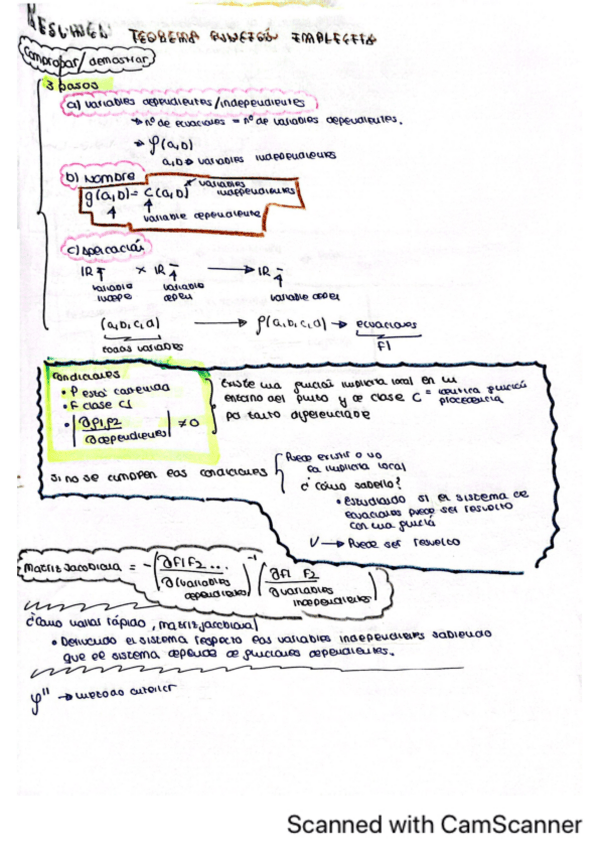 RESUMEN: TEOREMA FUNCIÓN IMPLÍCITA
Comprobar/demostrar
3 pasos
a) variables dependientes/independientes
→ nº de ecuaciones = nº de variables dependientes.
→ φ(a,b)
a,b → variables independientes
b) Nombre
g(a,b) = C(a,b) variables independientes
variable dependiente
c) Aplicación
IR × IR → IR
variable indepe variable depen variable depen
(a,b,c,d) → f(a,b,c,d) → ecuaciones
todas variables F1
Condiciones
• P está contenido
• F clase C1
• |∂F1F2 / ∂dependientes| ≠ 0
Existe una función implícita local en un
entorno del punto y de clase C = misma función procedencia
por tanto diferenciable
Si no se cumplen las condiciones
Puede existir o no
la implícita local
¿Cómo saberlo?
• estudiando si el sistema de
ecuaciones puede ser resuelto
con una función
V → Puede ser resuelto
Matriz Jacobiana = -(∂F1F2... / ∂(variables dependientes))⁻¹ (∂F1 F2 / ∂ variables independientes)
¿Como hallas rápido, matriz jacobiana?
• Derivando el sistema respecto las variables independientes sabiendo
que el sistema depende de funciones dependientes.
φ'' → metodo anterior
Scanned with CamScanner